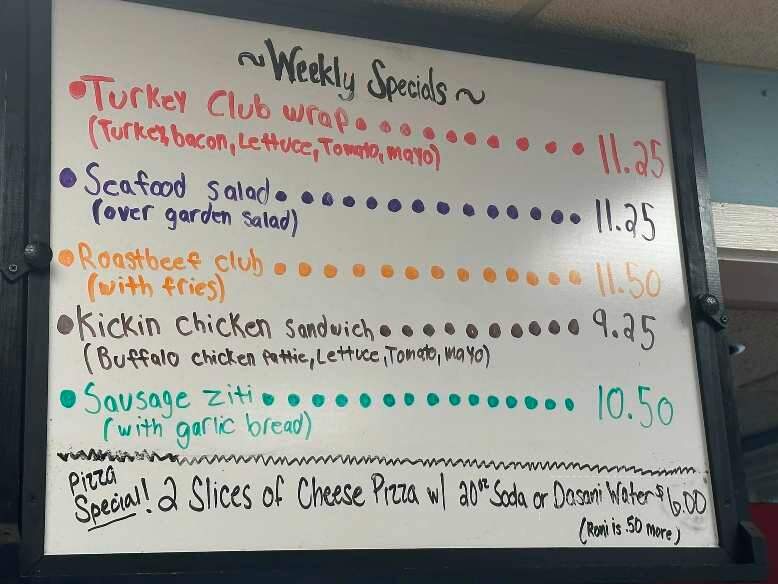 ~Weekly Specials~
•Turkey Club wrap............ 11.25
(Turkey, bacon, Lettuce, Tomato, mayo)
•Seafood salad.............. 11.25
(over garden salad)
•Roastbeef club............ 11.50
(with fries)
•Kickin chicken sandwich......... 9.25
(Buffalo chicken pattie, Lettuce, Tomato, mayo)
•Sausage ziti.............. 10.50
(with garlic bread)
Pizza
Special! 2 Slices of Cheese Pizza w/ 20oz Soda or Dasani Water $6.00
(Roni is .50 more)